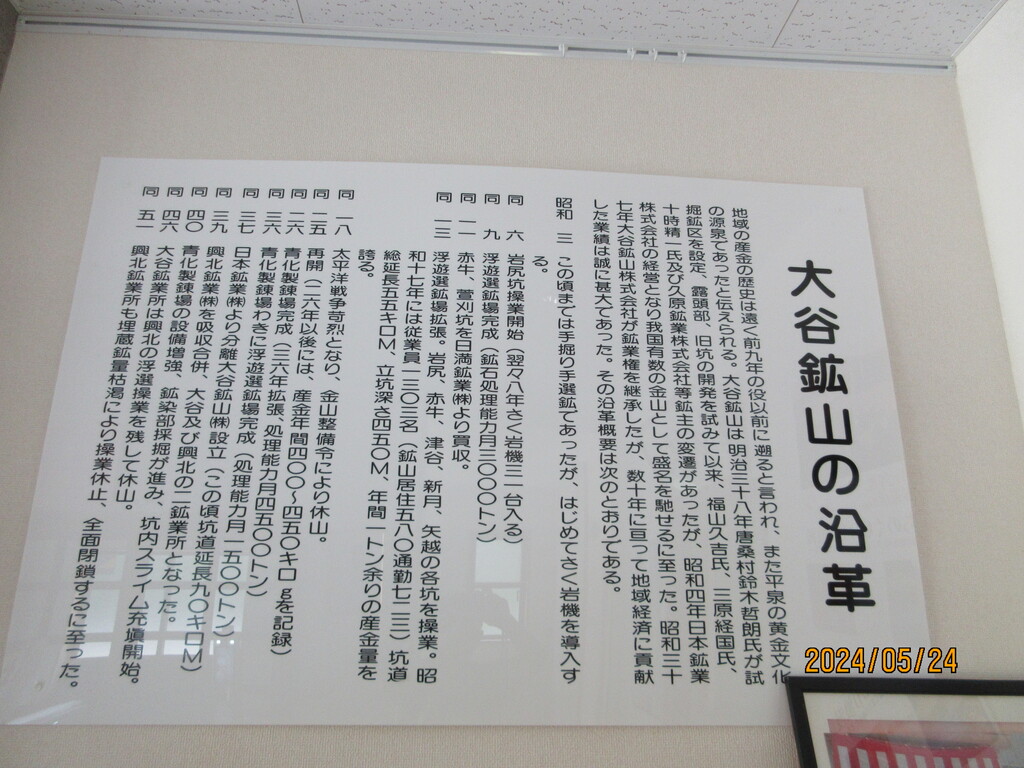 大谷鉱山の沿革
地域の産金の歴史は遠く前九年の役以前に遡ると言われ、また平泉の黄金文化
の源泉であったと伝えられる。大谷鉱山は明治三十八年唐桑村鈴木哲朗氏が試
掘鉱区を設定、露頭部、旧坑の開発を試みて以来、福山久吉氏、三原経国氏、
十時精一氏及び久原鉱業株式会社等鉱主の変遷があったが、昭和四年日本鉱業
株式会社の経営となり我国有数の金山として盛名を馳せるに至った。昭和三十
七年大谷鉱山株式会社が鉱業権を継承したが、数十年に亘って地域経済に貢献
した業績は誠に甚大であった。その沿革概要は次のとおりである。
昭和 三 この頃までは手掘り手選鉱であったが、はじめてさく岩機を導入す
る。
同 六 岩尻坑操業開始（翌々八年さく岩機三一台入る）
同 九 浮遊選鉱場完成（鉱石処理能力月三〇〇〇トン）
同 一一 赤牛、萱刈坑を日満鉱業㈱より買収。
同 一三 浮遊選鉱場拡張。岩尻、赤牛、津谷、新月、矢越の各坑を操業。昭
和十七年には従業員一三〇三名（鉱山居住五八〇通勤七二三）坑道
総延長五五キロM、立坑深さ四五〇M、年間一トン余りの産金量を
誇る。
同 一八 太平洋戦争苛烈となり、金山整備令により休山。
同 二五 再開（二六年以後には、産金年間四〇〇～四五〇キロgを記録）
同 二六 青化製錬場完成（三六年拡張 処理能力月四五〇〇トン）
同 三六 青化製錬場わきに浮遊選鉱場完成（処理能力月一五〇〇トン）
同 三七 日本鉱業㈱より分離大谷鉱山㈱設立（この頃坑道延長九〇キロM）
同 三九 興北鉱業㈱を吸収合併、大谷及び興北の二鉱業所となった。
同 四〇 青化製錬場の設備増強、鉱染部採掘が進み、坑内スライム充塡開始。
同 四六 大谷鉱業所は興北の浮選操業を残して休山。
同 五一 興北鉱業所も埋蔵鉱量枯渇により操業休止、全面閉鎖するに至った。
2024/05/24